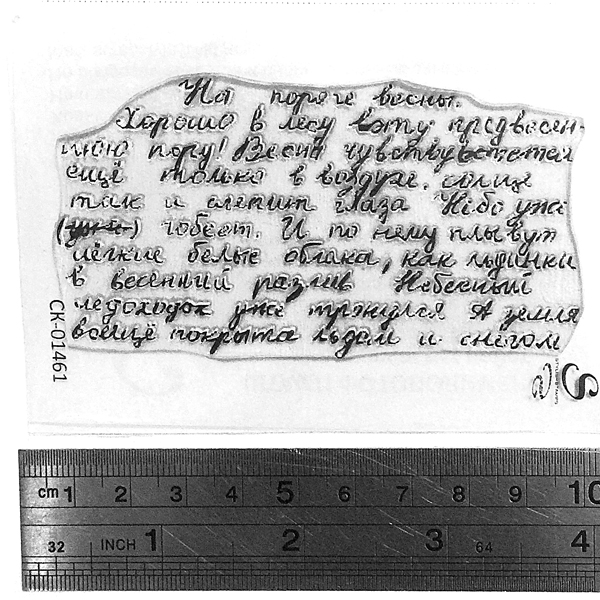 На пороге весны.
Хорошо в лесу в эту предвесен-
нюю пору! Весна чувствуется
ещё только в воздухе. солнце
так и слепит глаза Небо уже
(уже) гобеет. И по нему плывут
лёгкие белые облака, как льдинки
в весенний разлив Небесный
ледоходох уже тронулся А земля
всещё покрыта льдом и снегом
СК-01461
cm 1 2 3 4 5 6 7 8 9 10
32 INCH 1 2 3 64 4